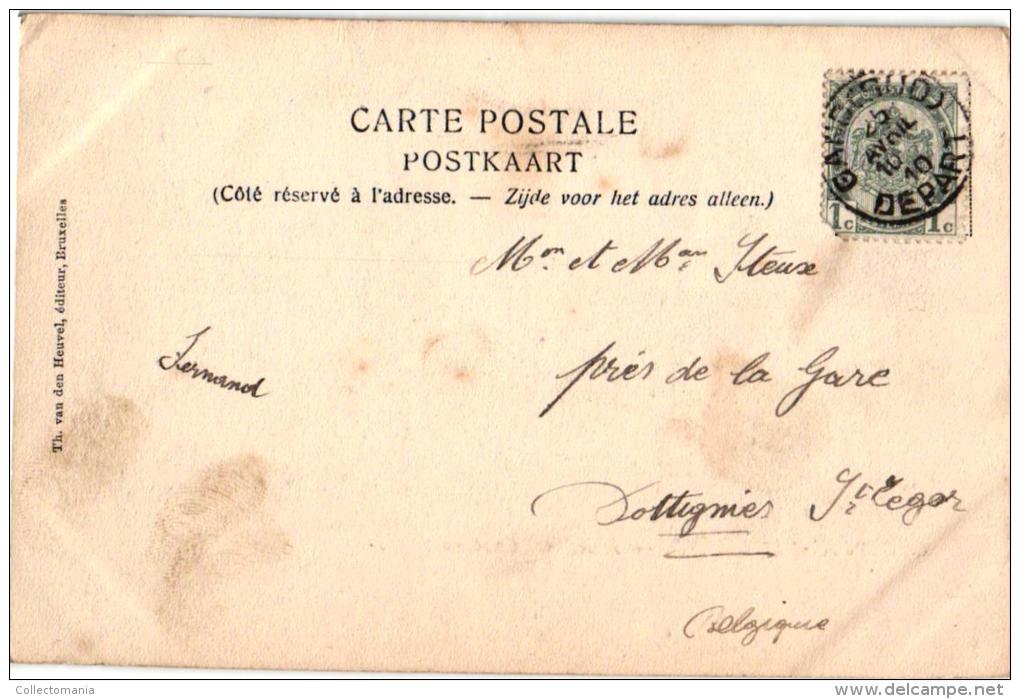 CARTE POSTALE
POSTKAART
(Côté réservé à l'adresse. — Zijde voor het adres alleen.)
Th. van den Heuvel, éditeur, Bruxelles
(SUD)
25
AVRIL
10
10
DEPART
1c 1c
Mon et Mme Steux
près de la Gare
Dottignies St Leger
Belgique
Fernand
Collectomania
www.delcampe.net